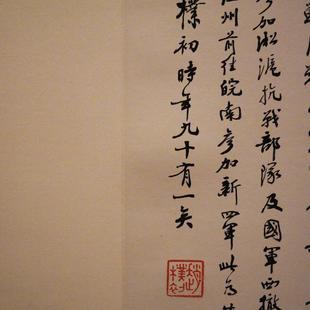 加淞滬抗戰部隊及國軍西撤
州前往皖南參加新四軍此為
樸初時年九十有一矣
趙樸初